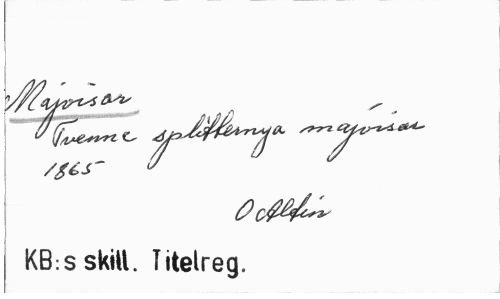 Majvisor
Tvenne splitternya majvisor
1865
KB:s skill. Titelreg.